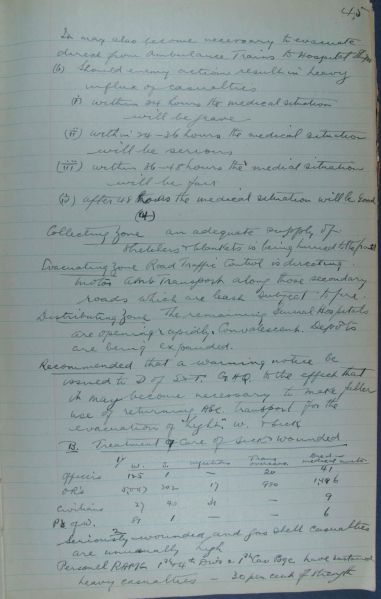 45
It may also become necessary to evacuate
direct from Ambulance Trains to Hospital Ships
(b) Should enemy action result in heavy
influx of casualties
(i) within 24 hours the medical situation
will be grave
(ii) within 24-36 hours the medical situation
will be serious
(iii) within 36-48 hours the medical situation
will be fair
(iv) after 48 hours the medical situation will be Good
(4)
Collecting Zone an adequate supply of
stretchers & blankets is being hurried to the front
Evacuating Zone Road Traffic Control is directing
motor amb Transport along those secondary
roads which are least subject to fire.
Distributing Zone The remaining General Hospitals
are opening rapidly. Convalescent Depots
are being expanded.
Recommended that a warning notice be
issued to D of S & T. GHQ. to the effect that
it may become necessary to make fuller
use of returning ASC. transport for the
evacuation of "light" W. & sick
B. Treatment & Care of Sick & wounded
W. S.
Officers 125 1 — 20 41
ORs 302 17 900 1,446
Civilians 27 40 — 9
Ps of W. 81 1 — — 6
Seriously wounded, and gas shell casualties
are unusually high
Personnel RAMC 1st & 4th Divs & 1st Cav Bgde have sustained
heavy casualties — 30 per cent of strength